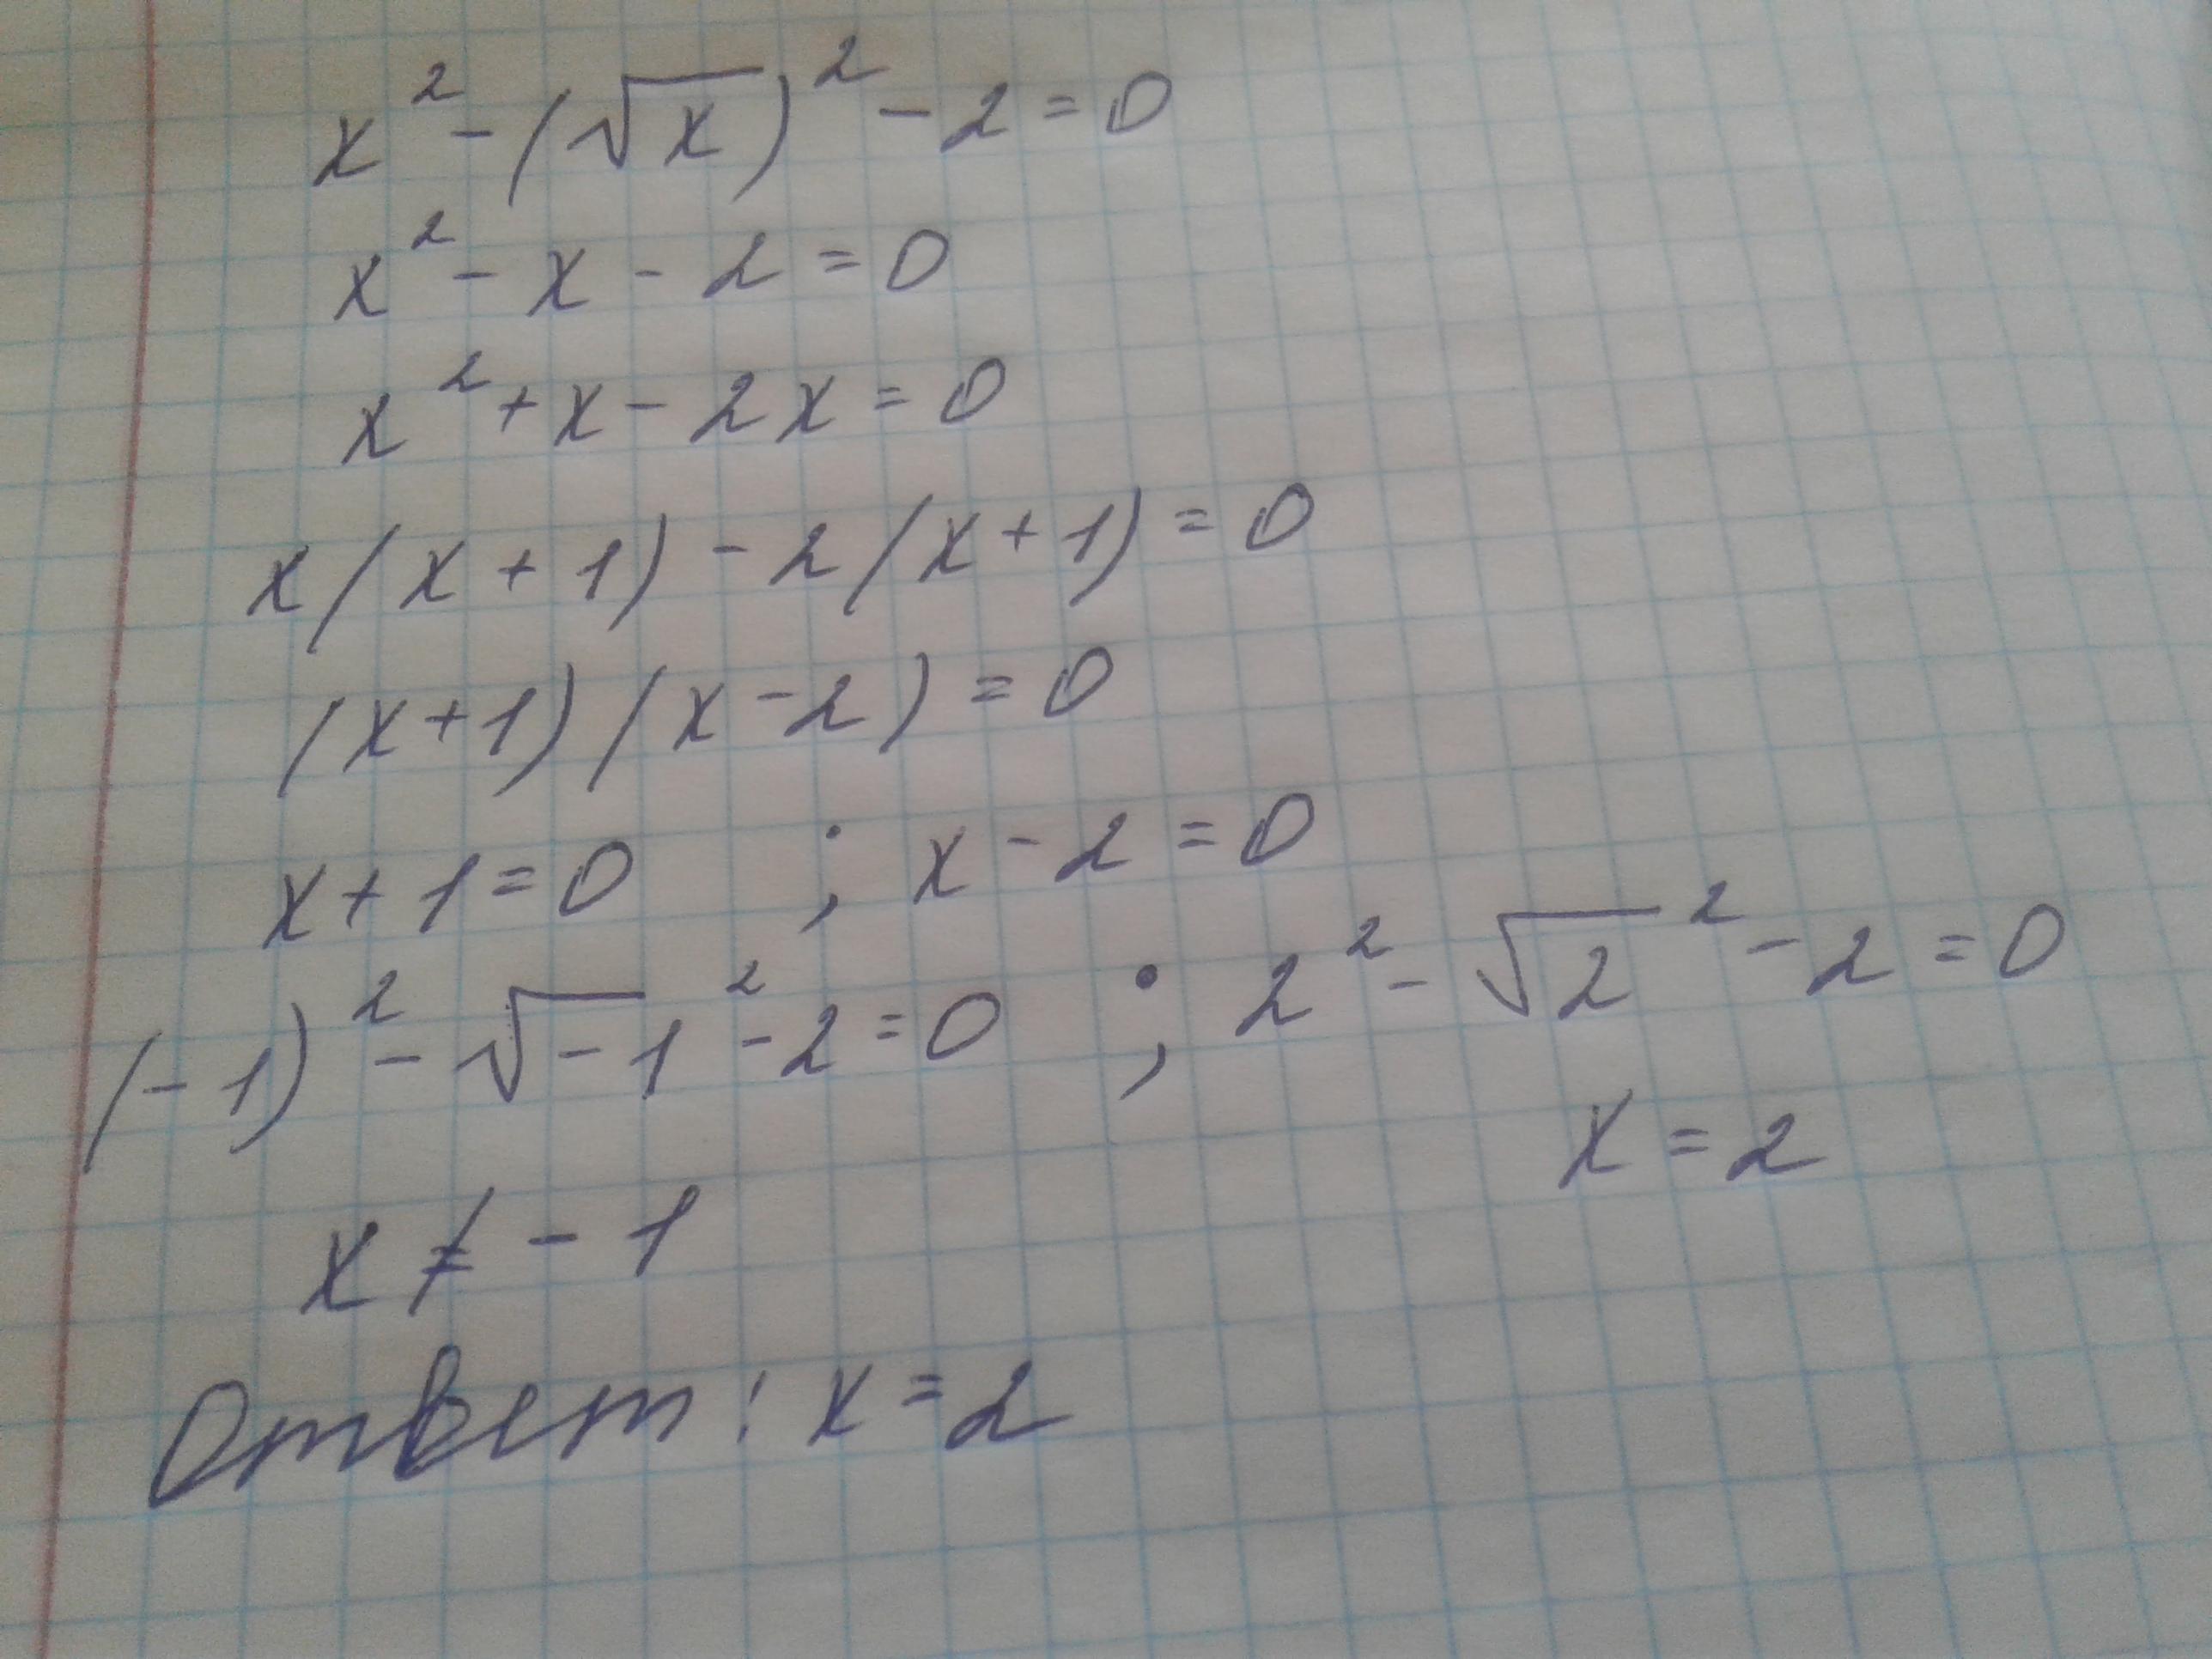 x² - (√x)² - 2 = 0
x² - x - 2 = 0
x² + x - 2x = 0
x(x + 1) - 2(x + 1) = 0
(x + 1)(x - 2) = 0
x + 1 = 0 ; x - 2 = 0
(-1)² - √-1² - 2 = 0 ; 2² - √2² - 2 = 0
x = 2
x ≠ - 1
Ответ: x = 2